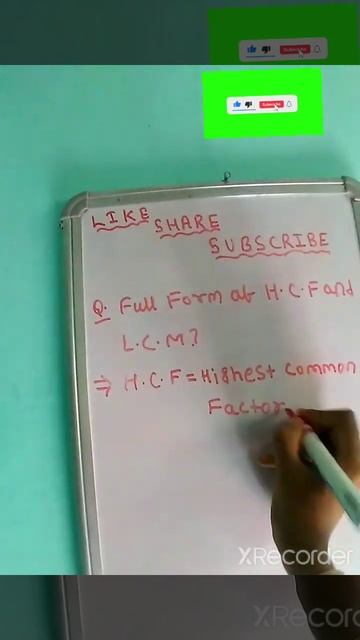 Subscribe
Subscribe
LIKE
SHARE
SUBSCRIBE
Q. Full Form of H.C.F and
L.C.M?
⇒ H.C.F = Highest Common
Factor
XRecorder
XRecor